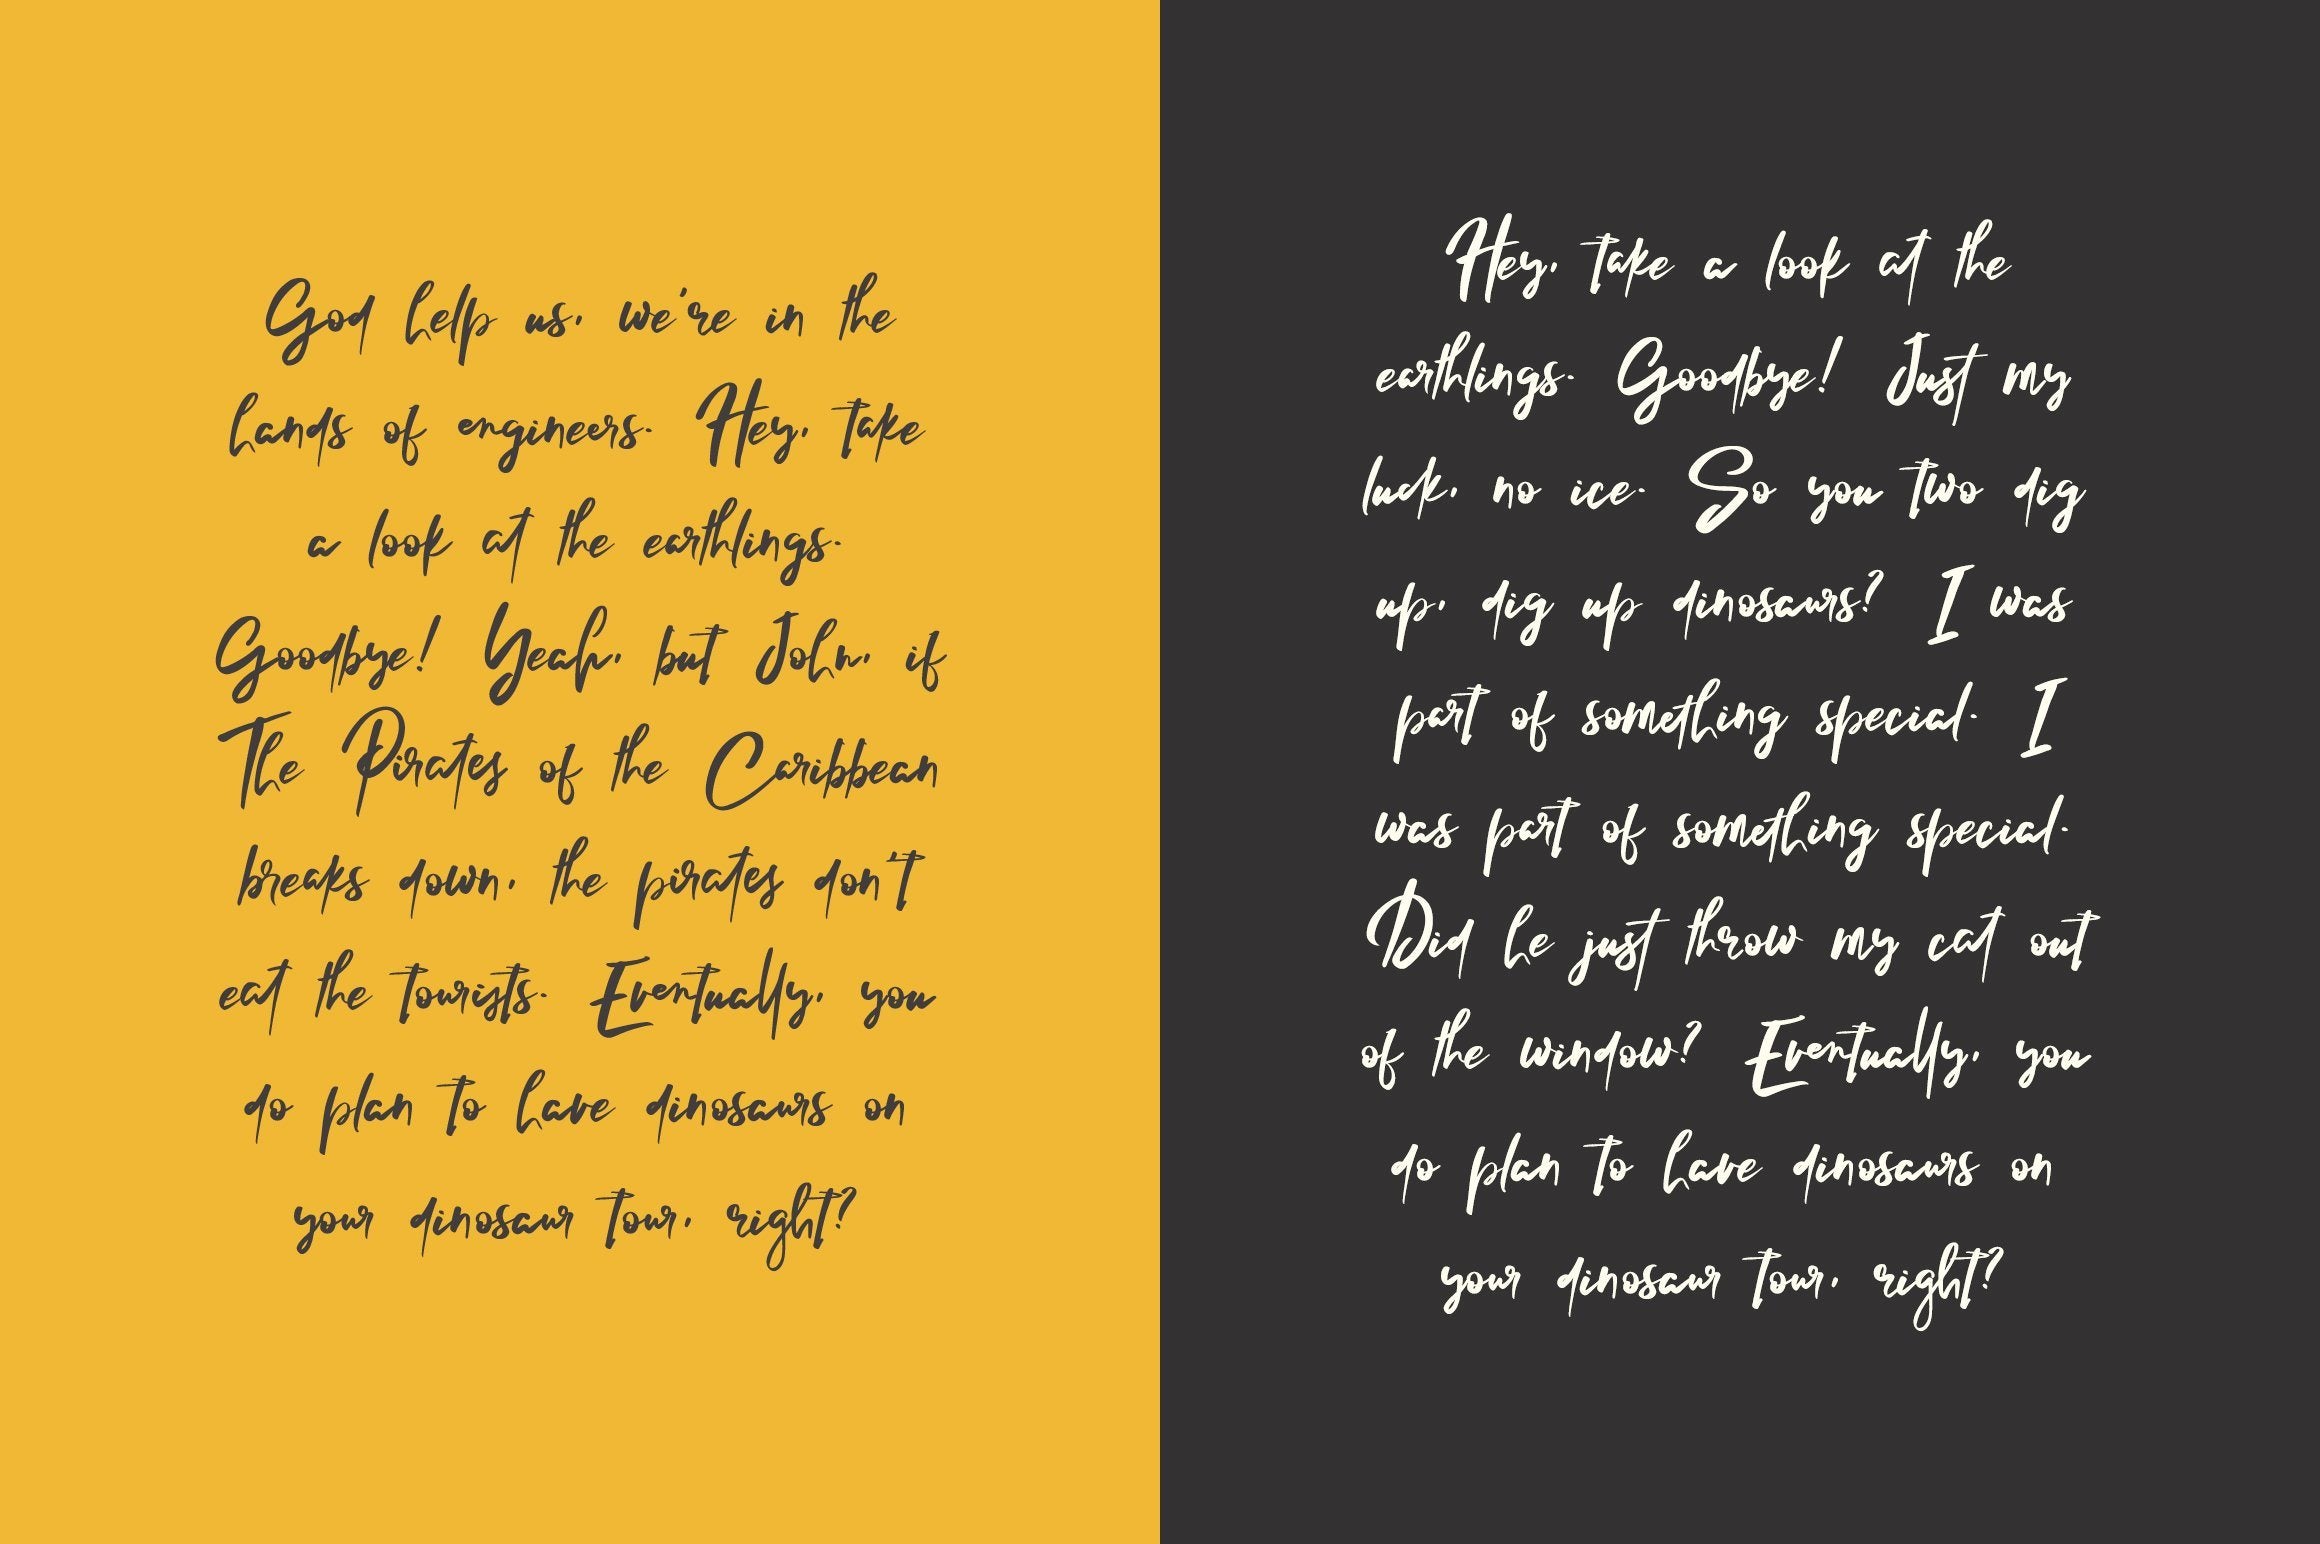 God help us, we're in the
hands of engineers. Hey, take
a look at the earthlings.
Goodbye! Yeah, but John, if
The Pirates of the Caribbean
breaks down, the pirates don't
eat the tourists. Eventually, you
do plan to have dinosaurs on
your dinosaur tour, right?
Hey, take a look at the
earthlings. Goodbye! Just my
luck, no ice. So you two dig
up, dig up dinosaurs? I was
part of something special. I
was part of something special.
Did he just throw my cat out
of the window? Eventually, you
do plan to have dinosaurs on
your dinosaur tour, right?